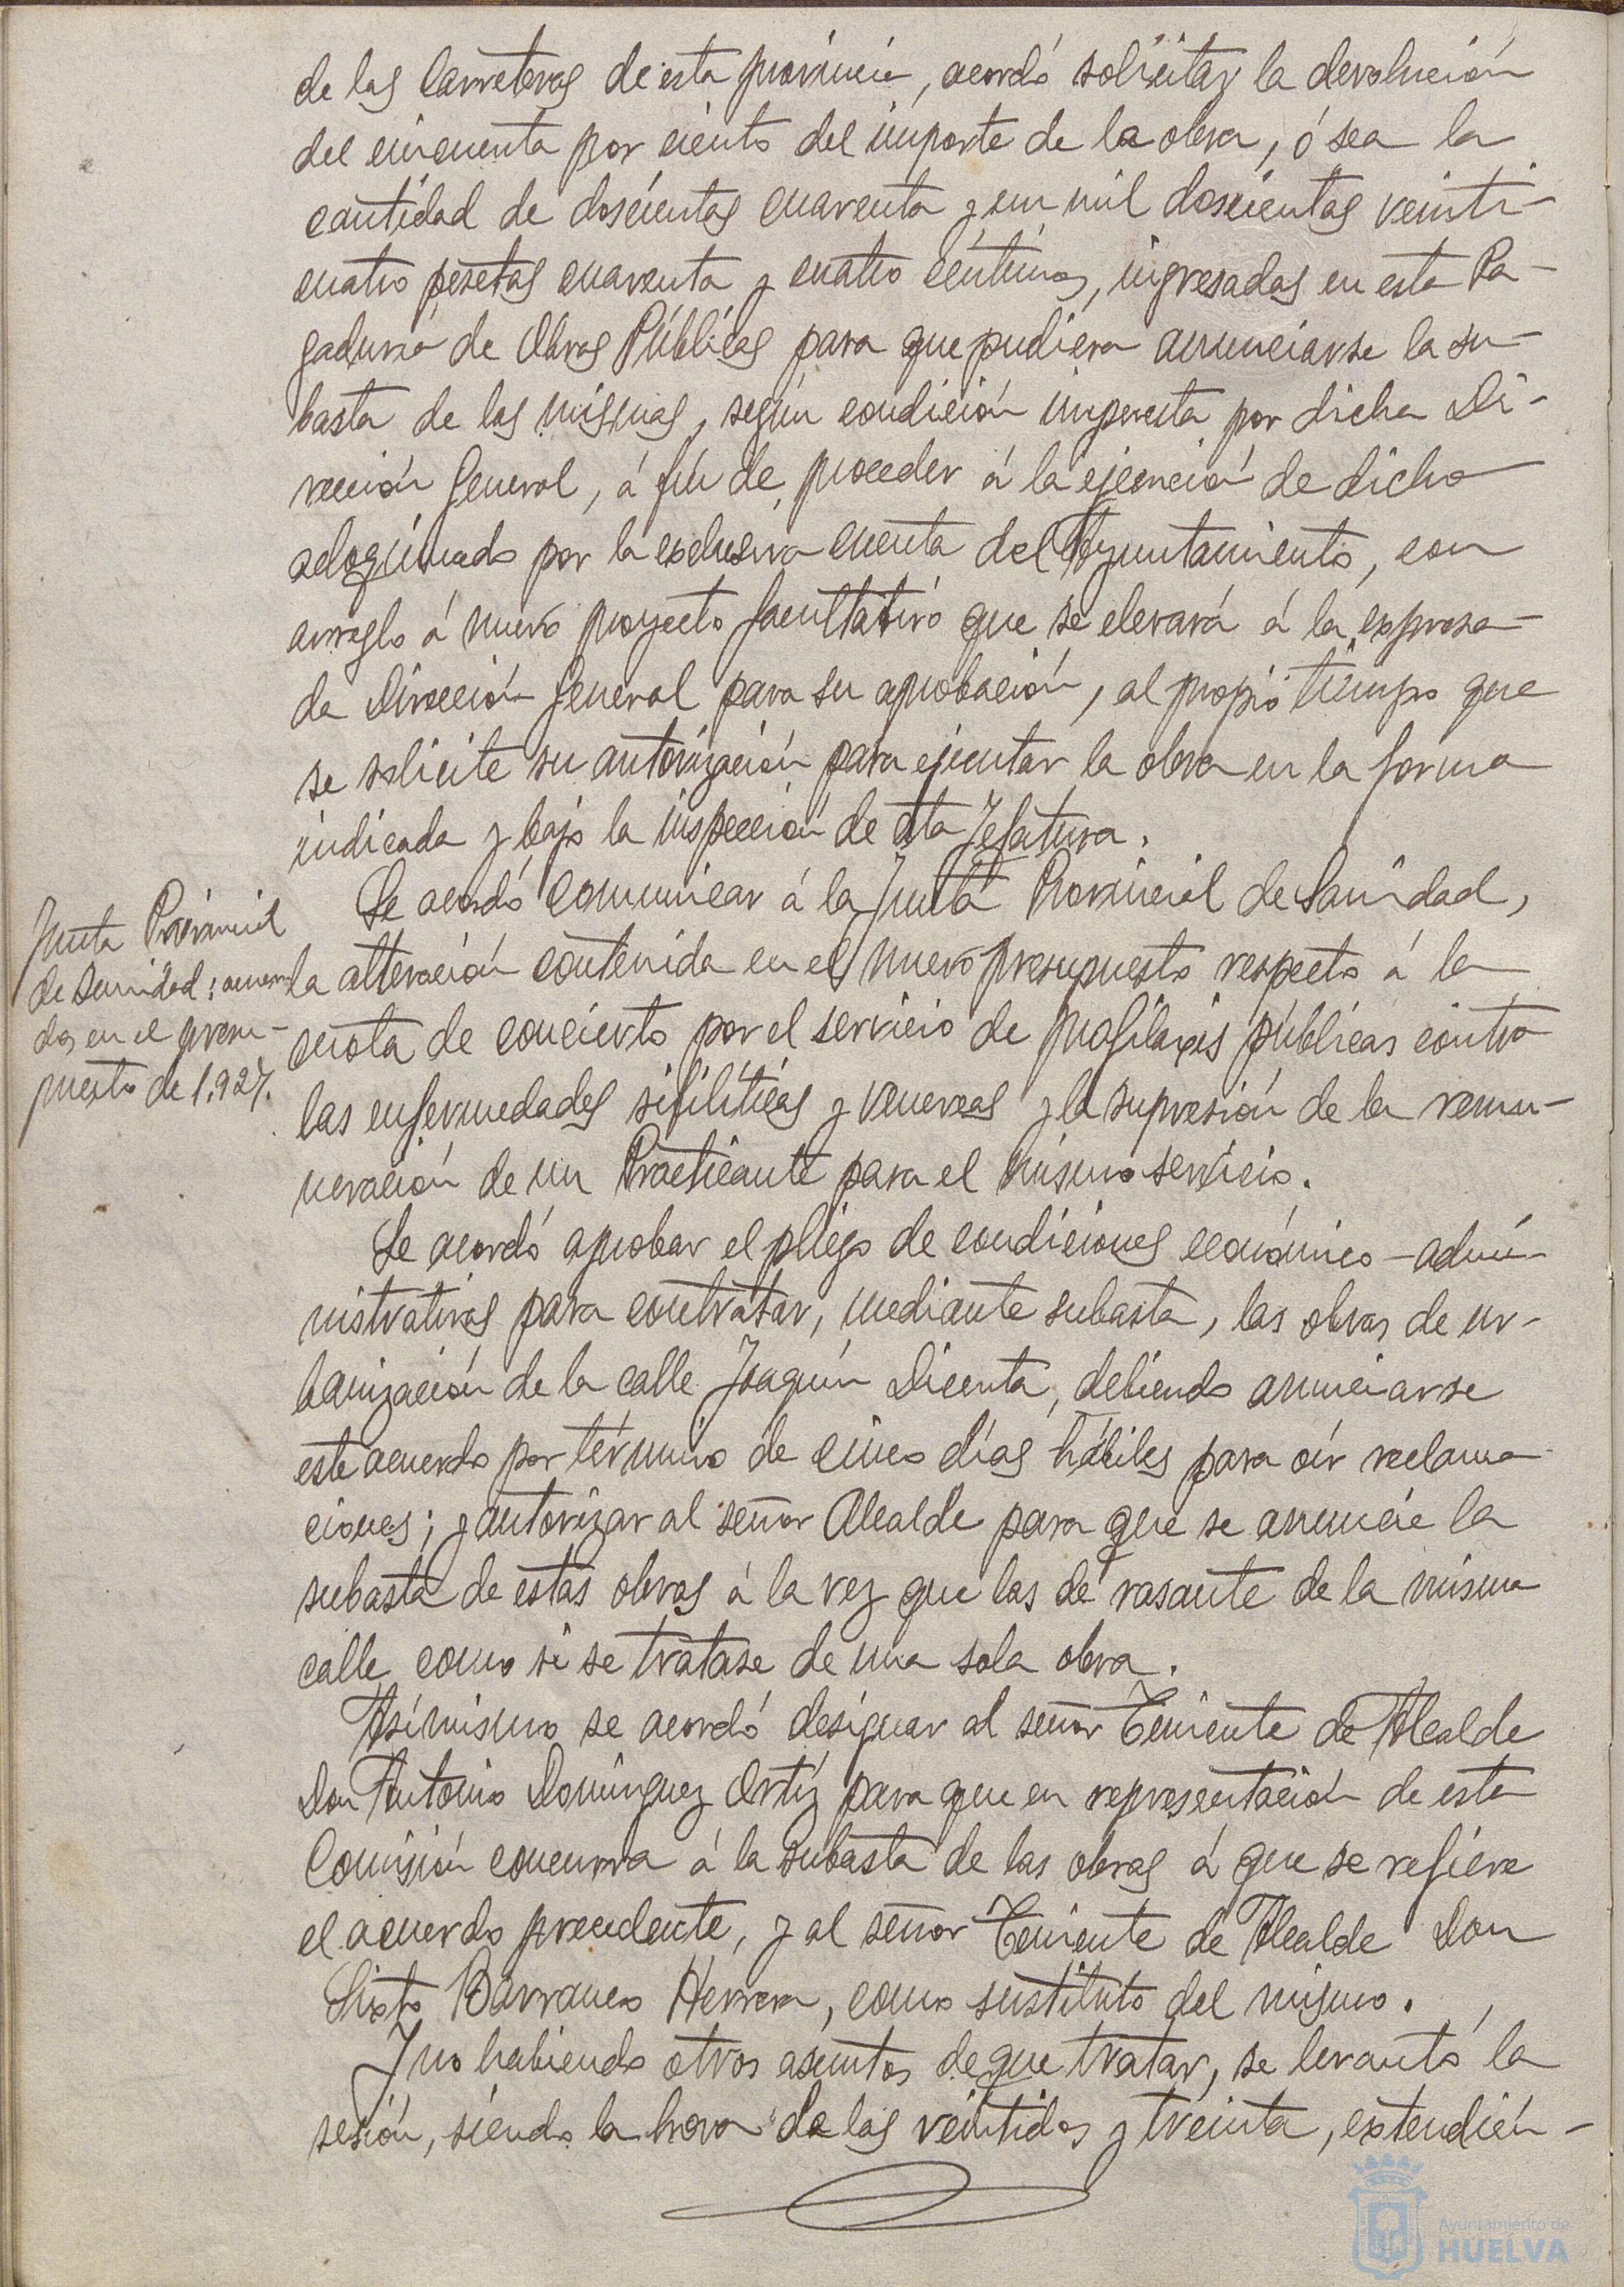 de las Carreteras de esta provincia, acordó solicitar la devolución
del cincuenta por ciento del importe de la obra, ó sea la
cantidad de doscientas cuarenta y un mil doscientas veinti-
cuatro pesetas cuarenta y cuatro céntimos, ingresadas en esta Pa-
gaduria de Obras Públicas para que pudiera anunciarse la su-
basta de las mismas, según condición impuesta por dicha Di-
rección General, á fin de proceder á la ejecución de dicho
adoquinado por la exclusiva cuenta del Ayuntamiento, con
arreglo á nuevo proyecto facultativo que se elevará á la expresa-
da Dirección General para su aprobación, al propio tiempo que
se solicite su autorización para ejecutar la obra en la forma
indicada y bajo la inspección de esta Jefatura.
Junta Provincial
de Sanidad; acuer
dos en el presu-
puesto de 1.927.
Se acordó comunicar á la Junta Provincial de Sanidad,
la alteración contenida en el nuevo presupuesto respecto á la
cuota de concierto por el servicio de profilaxis públicas contra
las enfermedades sifilíticas y venereas y la supresión de la remu-
neración de un Practicante para el mismo servicio.
Se acordó aprobar el pliego de condiciones económico-admi-
nistrativas para contratar, mediante subasta, las obras de ur-
banización de la calle Joaquín Dicenta, debiendo anunciarse
este acuerdo por término de cinco días hábiles para oír reclama
ciones; y autorizar al señor Alcalde para que se anuncie la
subasta de estas obras á la vez que las de rasante de la misma
calle como si se tratase de una sola obra.
Asímismo se acordó designar al señor Teniente de Alcalde
Don Antonio Domínguez Ortíz para que en representación de esta
Comisión concurra á la subasta de las obras á que se refiere
el acuerdo precedente, y al señor Teniente de Alcalde Don
Sixto Barranco Herrera, como sustituto del mismo.
Y no habiendo otros asuntos de que tratar, se levantó la
sesión, siendo la hora de las veintidos y treinta, extendién-
Ayuntamiento de
HUELVA